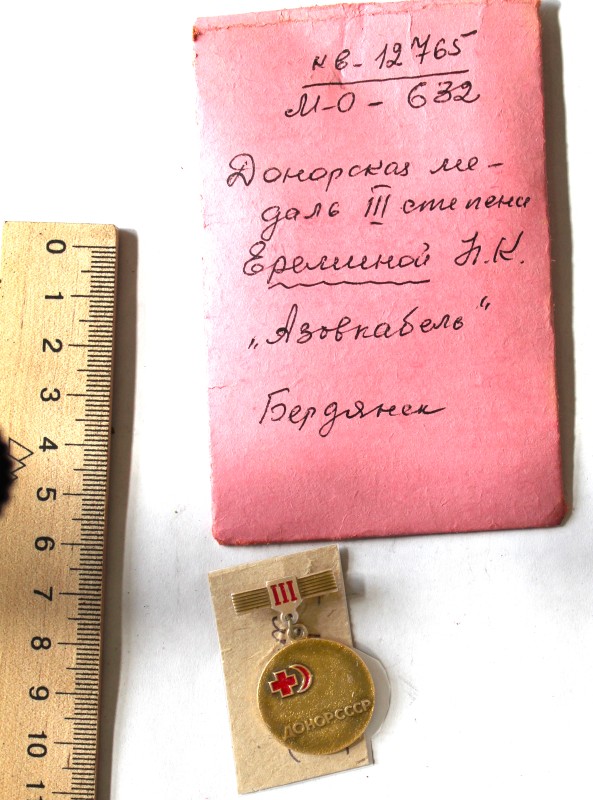 кв-12765
М-О-632
Донорская ме-
даль III степени
Ереминой Н.К.
„Азовкабель"
Бердянск
0
1
2
3
4
5
6
7
8
9
10
III
ДОНОР СССР